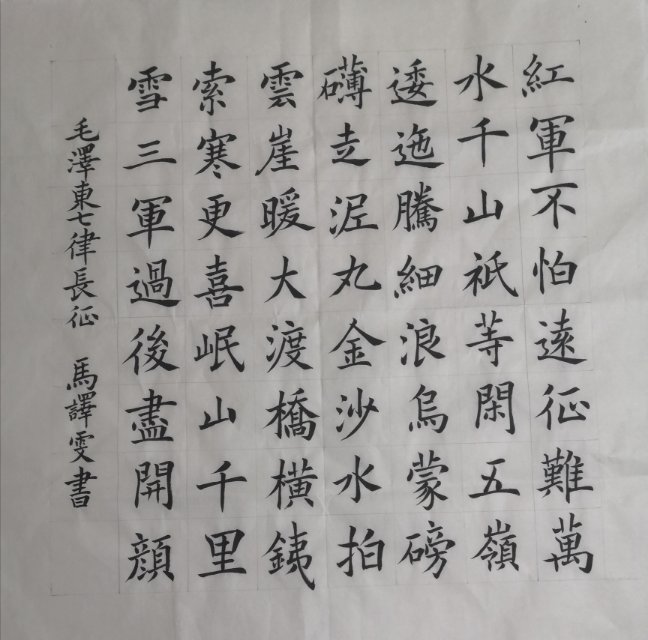 紅軍不怕遠征難萬
水千山祇等閑五嶺
逶迤騰細浪烏蒙磅
礴走泥丸金沙水拍
雲崖暖大渡橋橫銕
索寒更喜岷山千里
雪三軍過後盡開顔
毛澤東七律長征 馬譯雯書